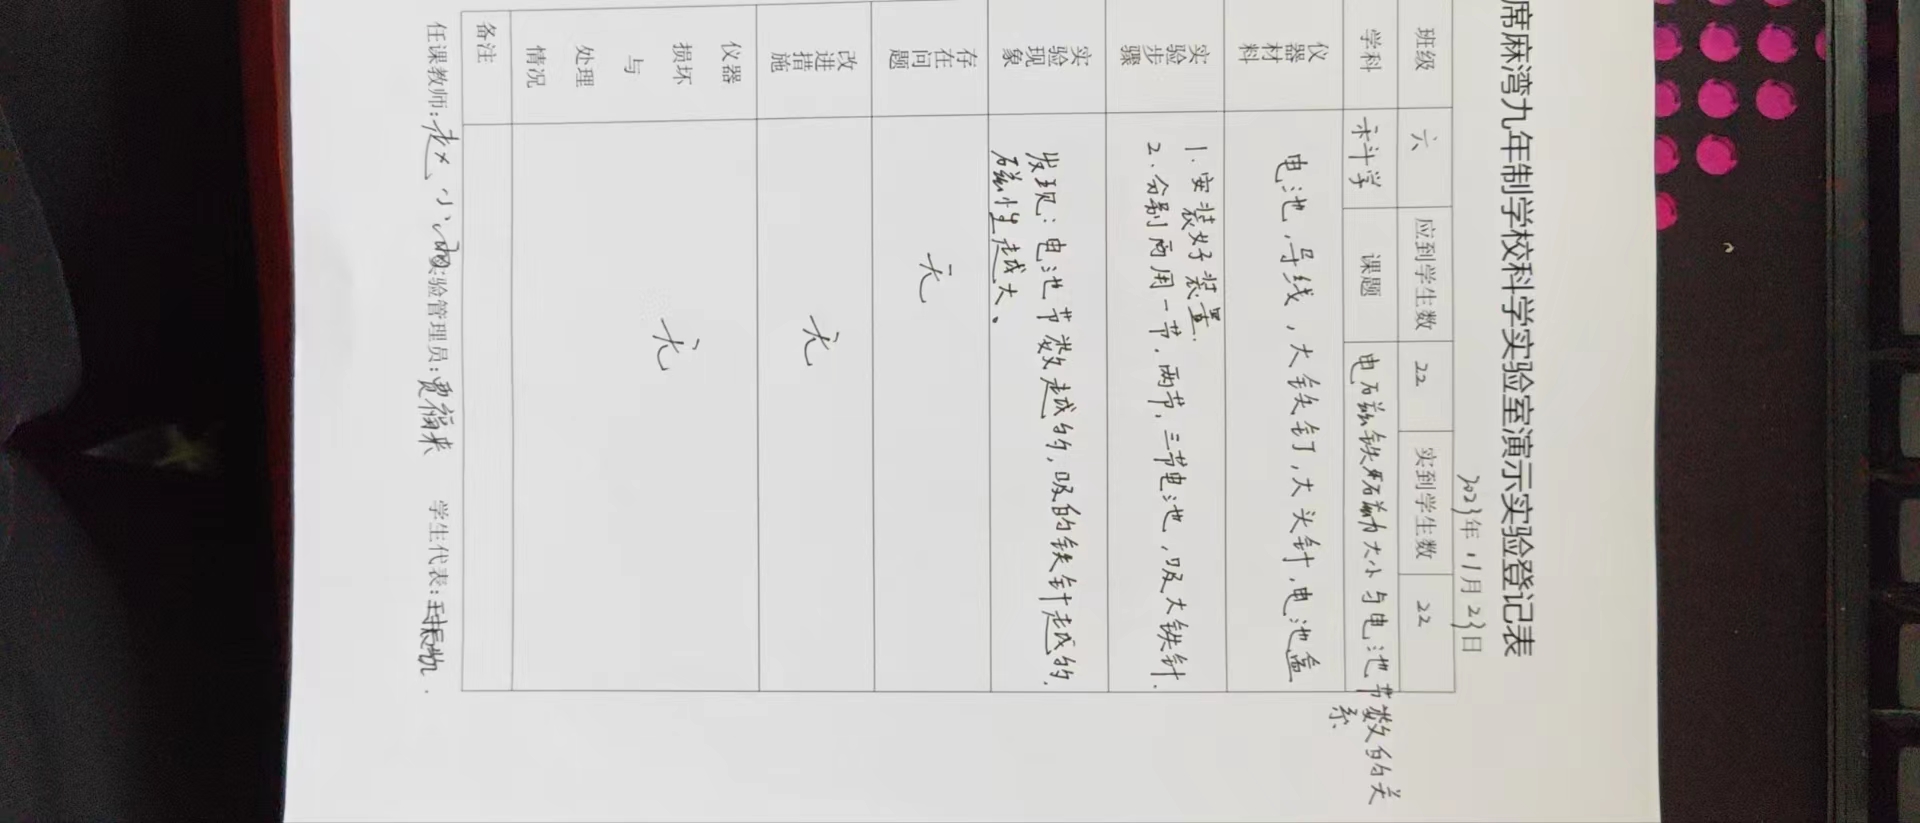 席麻湾九年制学校科学实验室演示实验登记表
2023年11月23日
班级 六 应到学生数 22 实到学生数 22
学科 科学 课题 电磁铁磁力大小与电池节数的关
系
仪器材料 电池,导线,大铁钉,大头针,电池盒
实验步骤 1.安装好装置.
2.分别两用一节,两节,三节电池,吸大铁针.
实验现象 发现:电池节数越的,吸的铁针越的.
磁性越大。
存在问题 无
改进措施 无
仪器损坏与处理情况 无
备注
任课教师:赵小 实验管理员:贾福来 学生代表: